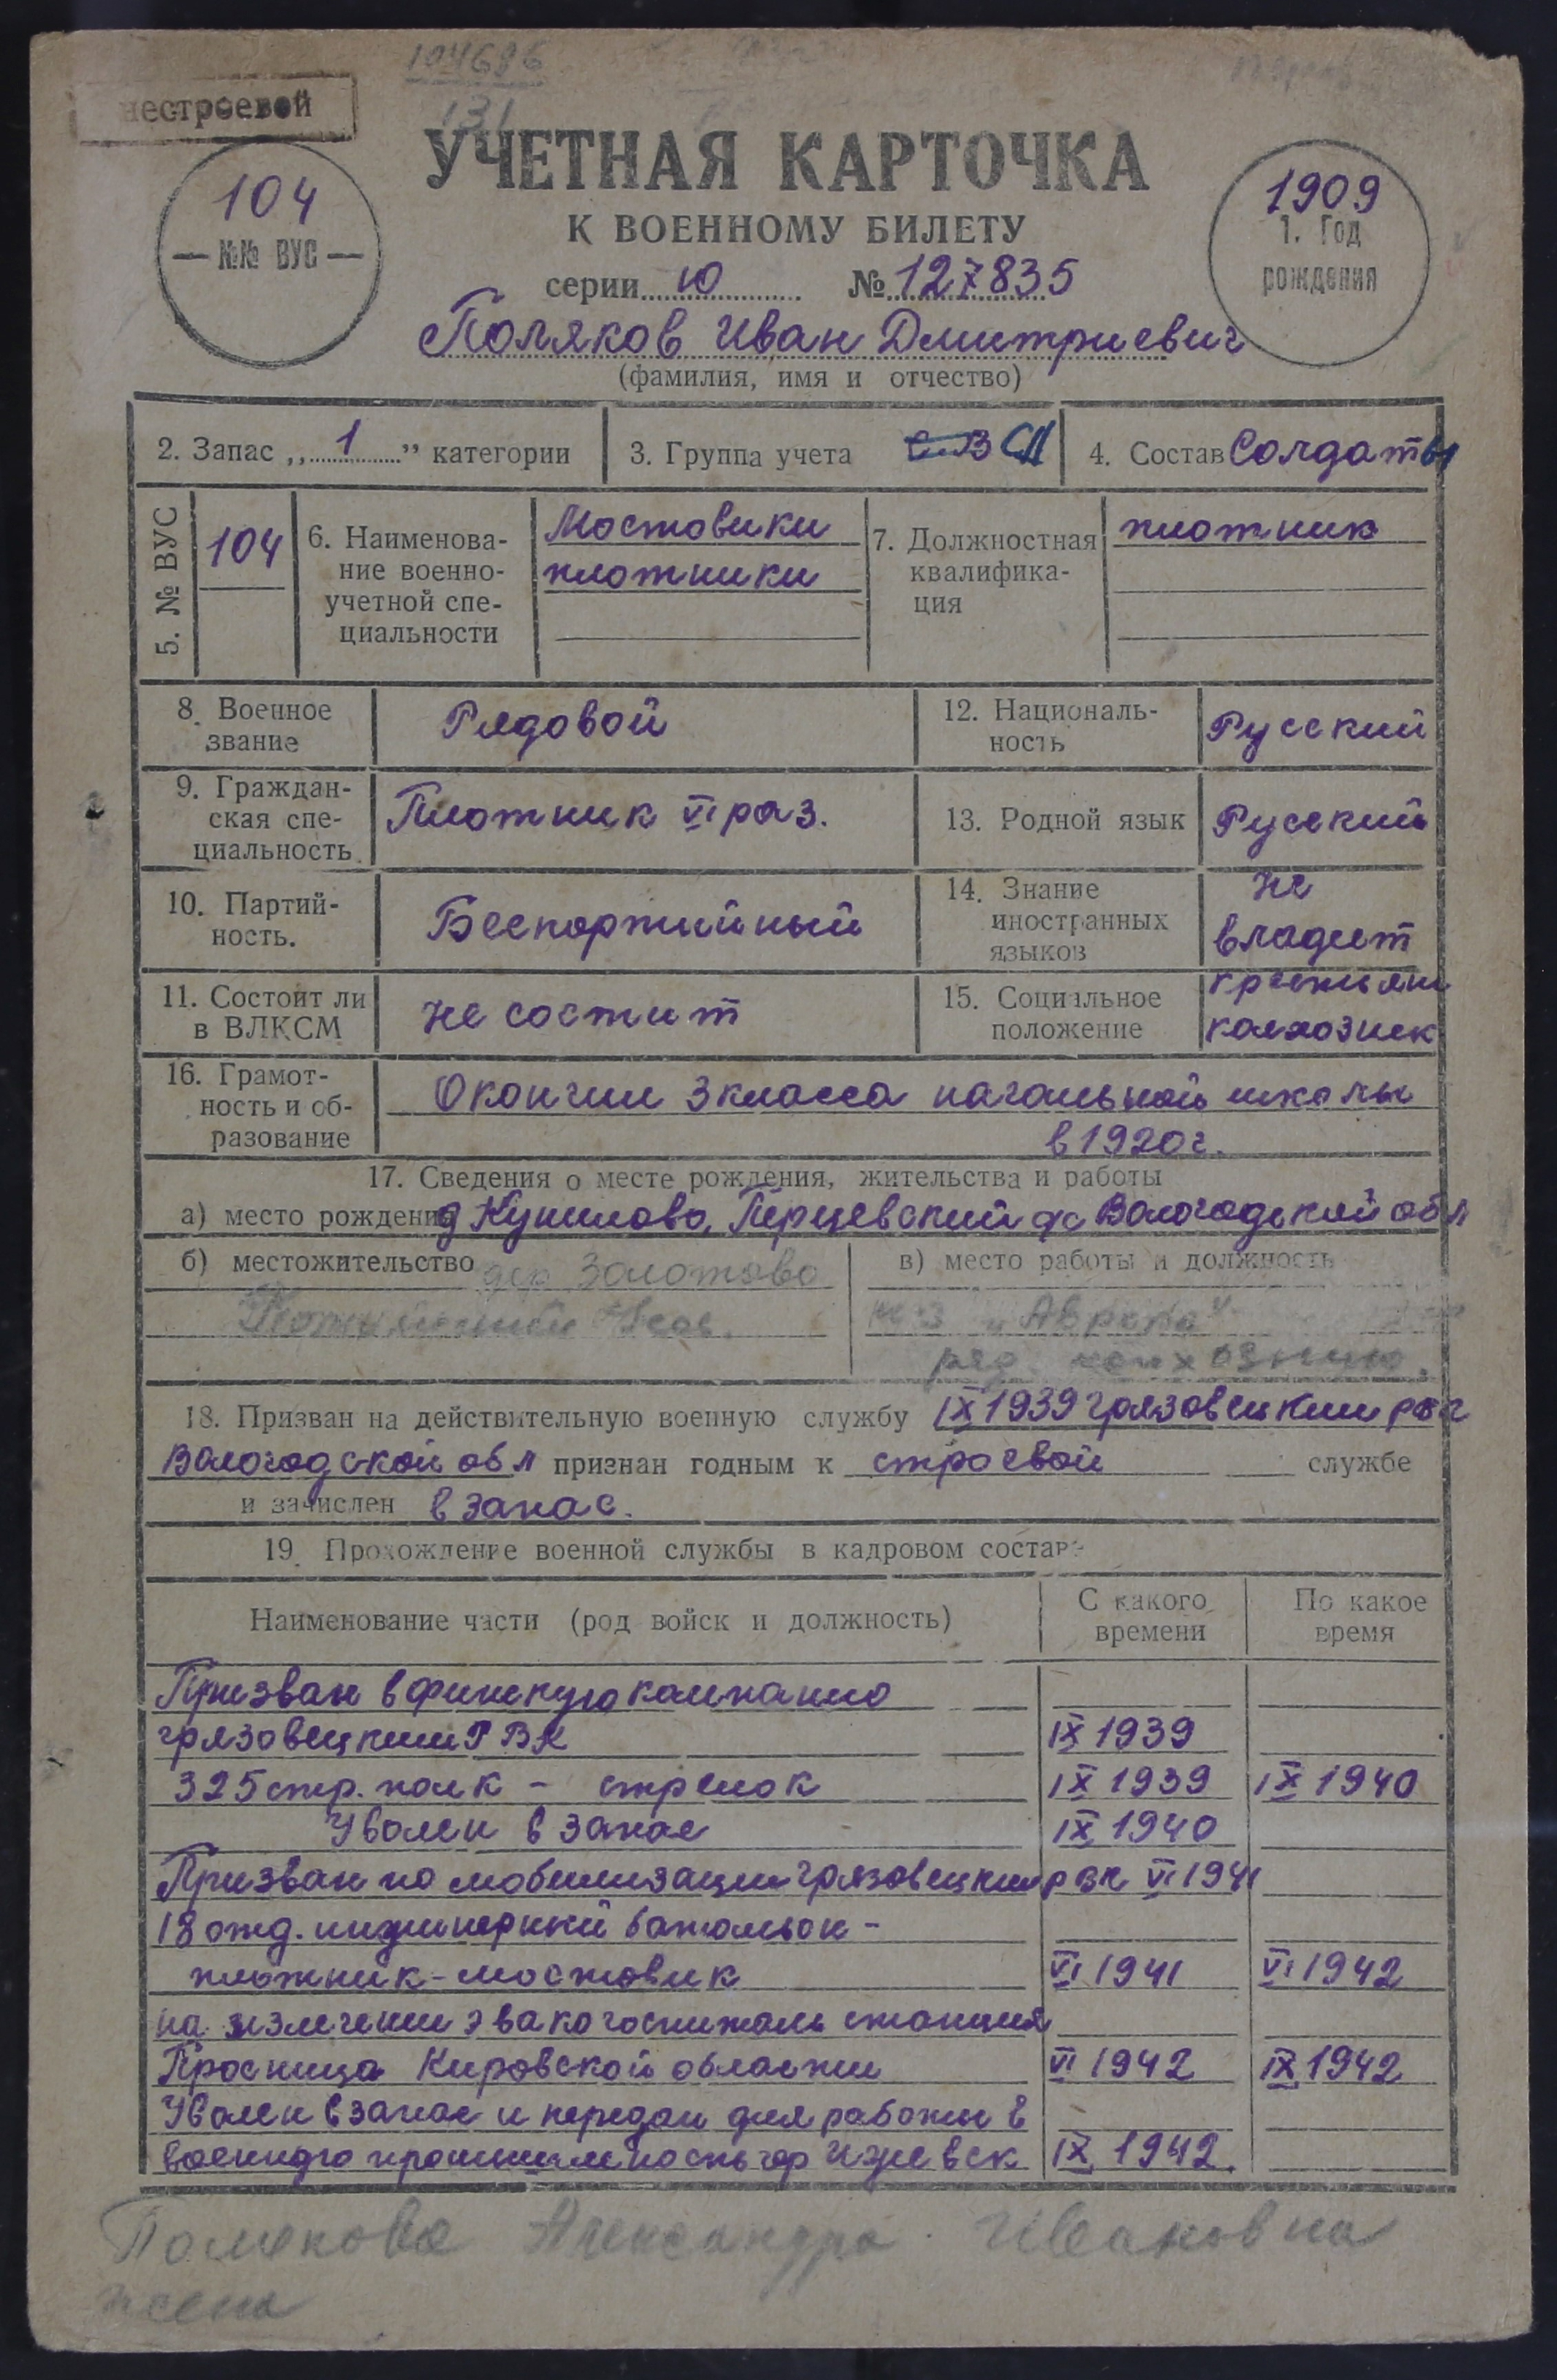 104686
131
нестроевой
УЧЕТНАЯ КАРТОЧКА
К ВОЕННОМУ БИЛЕТУ
104
— №№ ВУС —
1909
1. Год
рождения
серии Ю № 127835
Поляков Иван Дмитриевич
(фамилия, имя и отчество)
2. Запас „ 1 ” категории
3. Группа учета СА
4. Состав Солдаты
5. № ВУС
104
6. Наименова-
ние военно-
учетной спе-
циальности
Мостовики
плотники
7. Должностная
квалифика-
ция
плотник
8. Военное
звание
Рядовой
12. Националь-
ность
Русский
9. Граждан-
ская спе-
циальность
Плотник VI раз.
13. Родной язык
Русский
10. Партий-
ность.
Беспартийный
14. Знание
иностранных
языков
не
владеет
11. Состоит ли
в ВЛКСМ
не состоит
15. Социальное
положение
крестьян
колхозник
16. Грамот-
ность и об-
разование
Окончил 3 класса начальной школы
в 1920г.
17. Сведения о месте рождения, жительства и работы
а) место рождения д Кушилово, Перцевский с/с Вологодской обл
б) местожительство дер Золотово
в) место работы и должность
к-з „Аврора“
ряд. колхозник.
18. Призван на действительную военную службу IX 1939 Грязовецким рвк
Вологодской обл признан годным к строевой службе
и зачислен в запас.
19. Прохождение военной службы в кадровом составе
Наименование части (род войск и должность)
С какого
времени
По какое
время
Призван в финскую кампанию
грязовецким РВК IX 1939
325 стр. полк - стрелок IX 1939 IX 1940
Уволен в запас IX 1940
Призван по мобилизации грязовецким рвк VI 1941
18 отд. инжинерный батольон -
плотник-мостовик VI 1941 VI 1942
на излечении эвакогоспиталь станция
Просница Кировской области VI 1942 IX 1942
Уволен в запас и передан для работы в
военную промышленность гор Ижевск IX 1942.
Полякова Александра Ивановна
жена